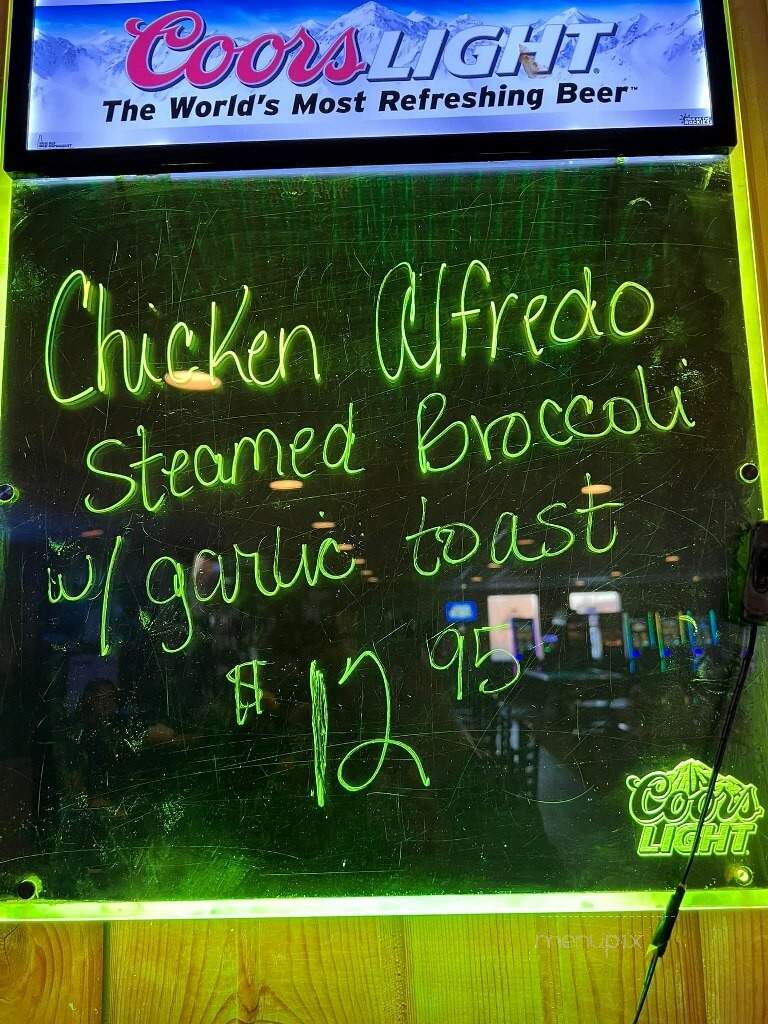 Coors LIGHT
The World's Most Refreshing Beer™
Chicken Alfredo
Steamed Broccoli
w/ garlic toast
$12.95
Coors
LIGHT
menupix